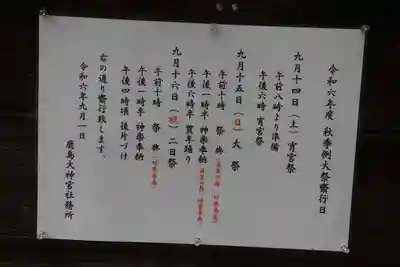 令和六年度 秋季例大祭斎行日
九月十四日(土)宵宮祭
午前八時より準備
午後六時 宵宮祭
九月十五日(日)大祭
午前十時 祭典
午後一時半 神楽奉納
午後六時半 豊年踊り
九月十六日(祝)二日祭
午前十時 祭典
午後一時半 神楽奉納
午後四時頃 後片づけ
右の通り斎行致します。
令和六年九月一日
鹿島大神宮社務所